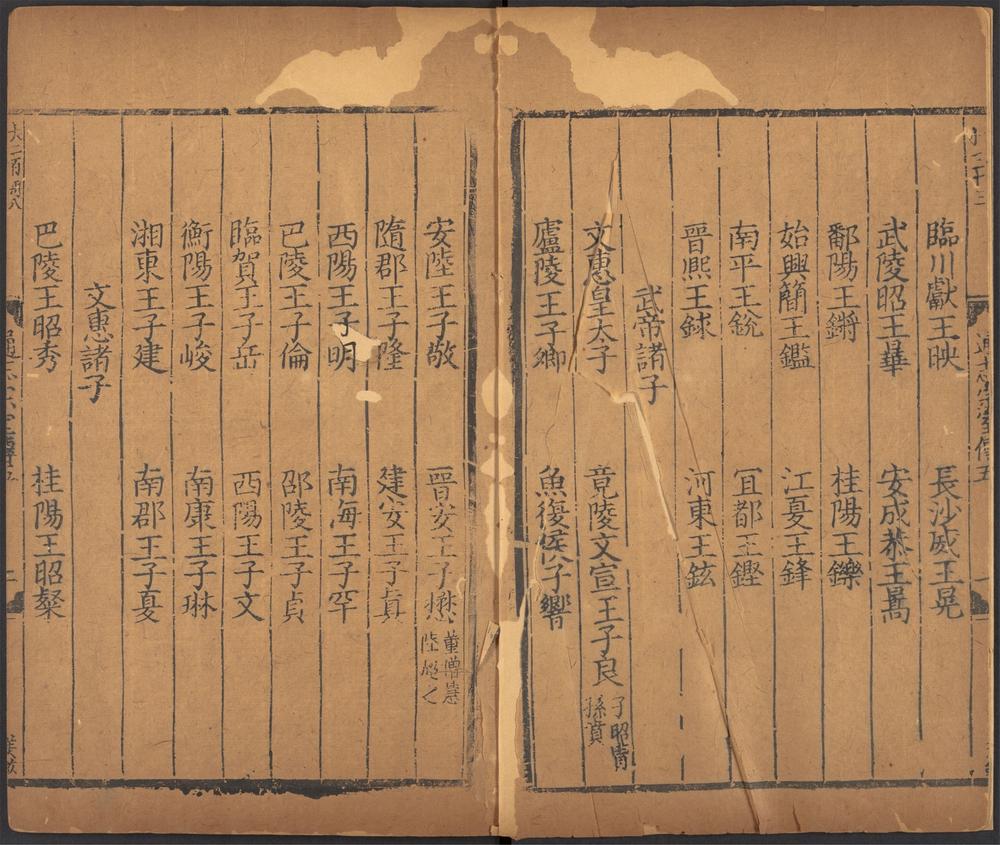 臨川獻王映 長沙威王晃
武陵昭王曅 安成恭王暠
鄱陽王鏘 桂陽王鑠
始興簡王鑑 江夏王鋒
南平王銳 宜都王鏗
晉熙王銶 河東王鉉
武帝諸子
文惠皇太子 竟陵文宣王子良 子昭胄 孫賁
廬陵王子卿 魚復侯子響
安陸王子敬 晉安王子懋 董僧慧 陸超之
隋郡王子隆 建安王子真
西陽王子明 南海王子罕
巴陵王子倫 邵陵王子貞
臨賀王子岳 西陽王子文
衡陽王子峻 南康王子琳
湘東王子建 南郡王子夏
文惠諸子
巴陵王昭秀 桂陽王昭粲